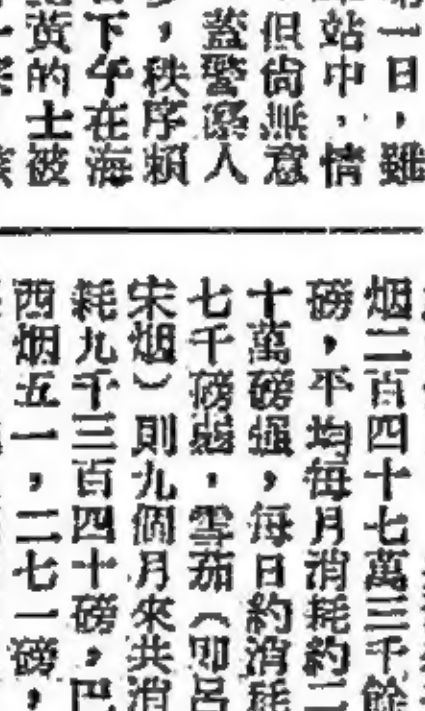 一日，雖
站中，情
但尙無意
蓋警察人
，秩序頼
下午在海
黃的士被
烟二百四十七萬三千餘
磅，平均每月消耗約二
十萬磅强，每日約消耗
七千磅弱。雪茄（卽呂
宋烟）則九個月來共消
耗九千三百四十磅，巴
西烟五一，二七一磅，